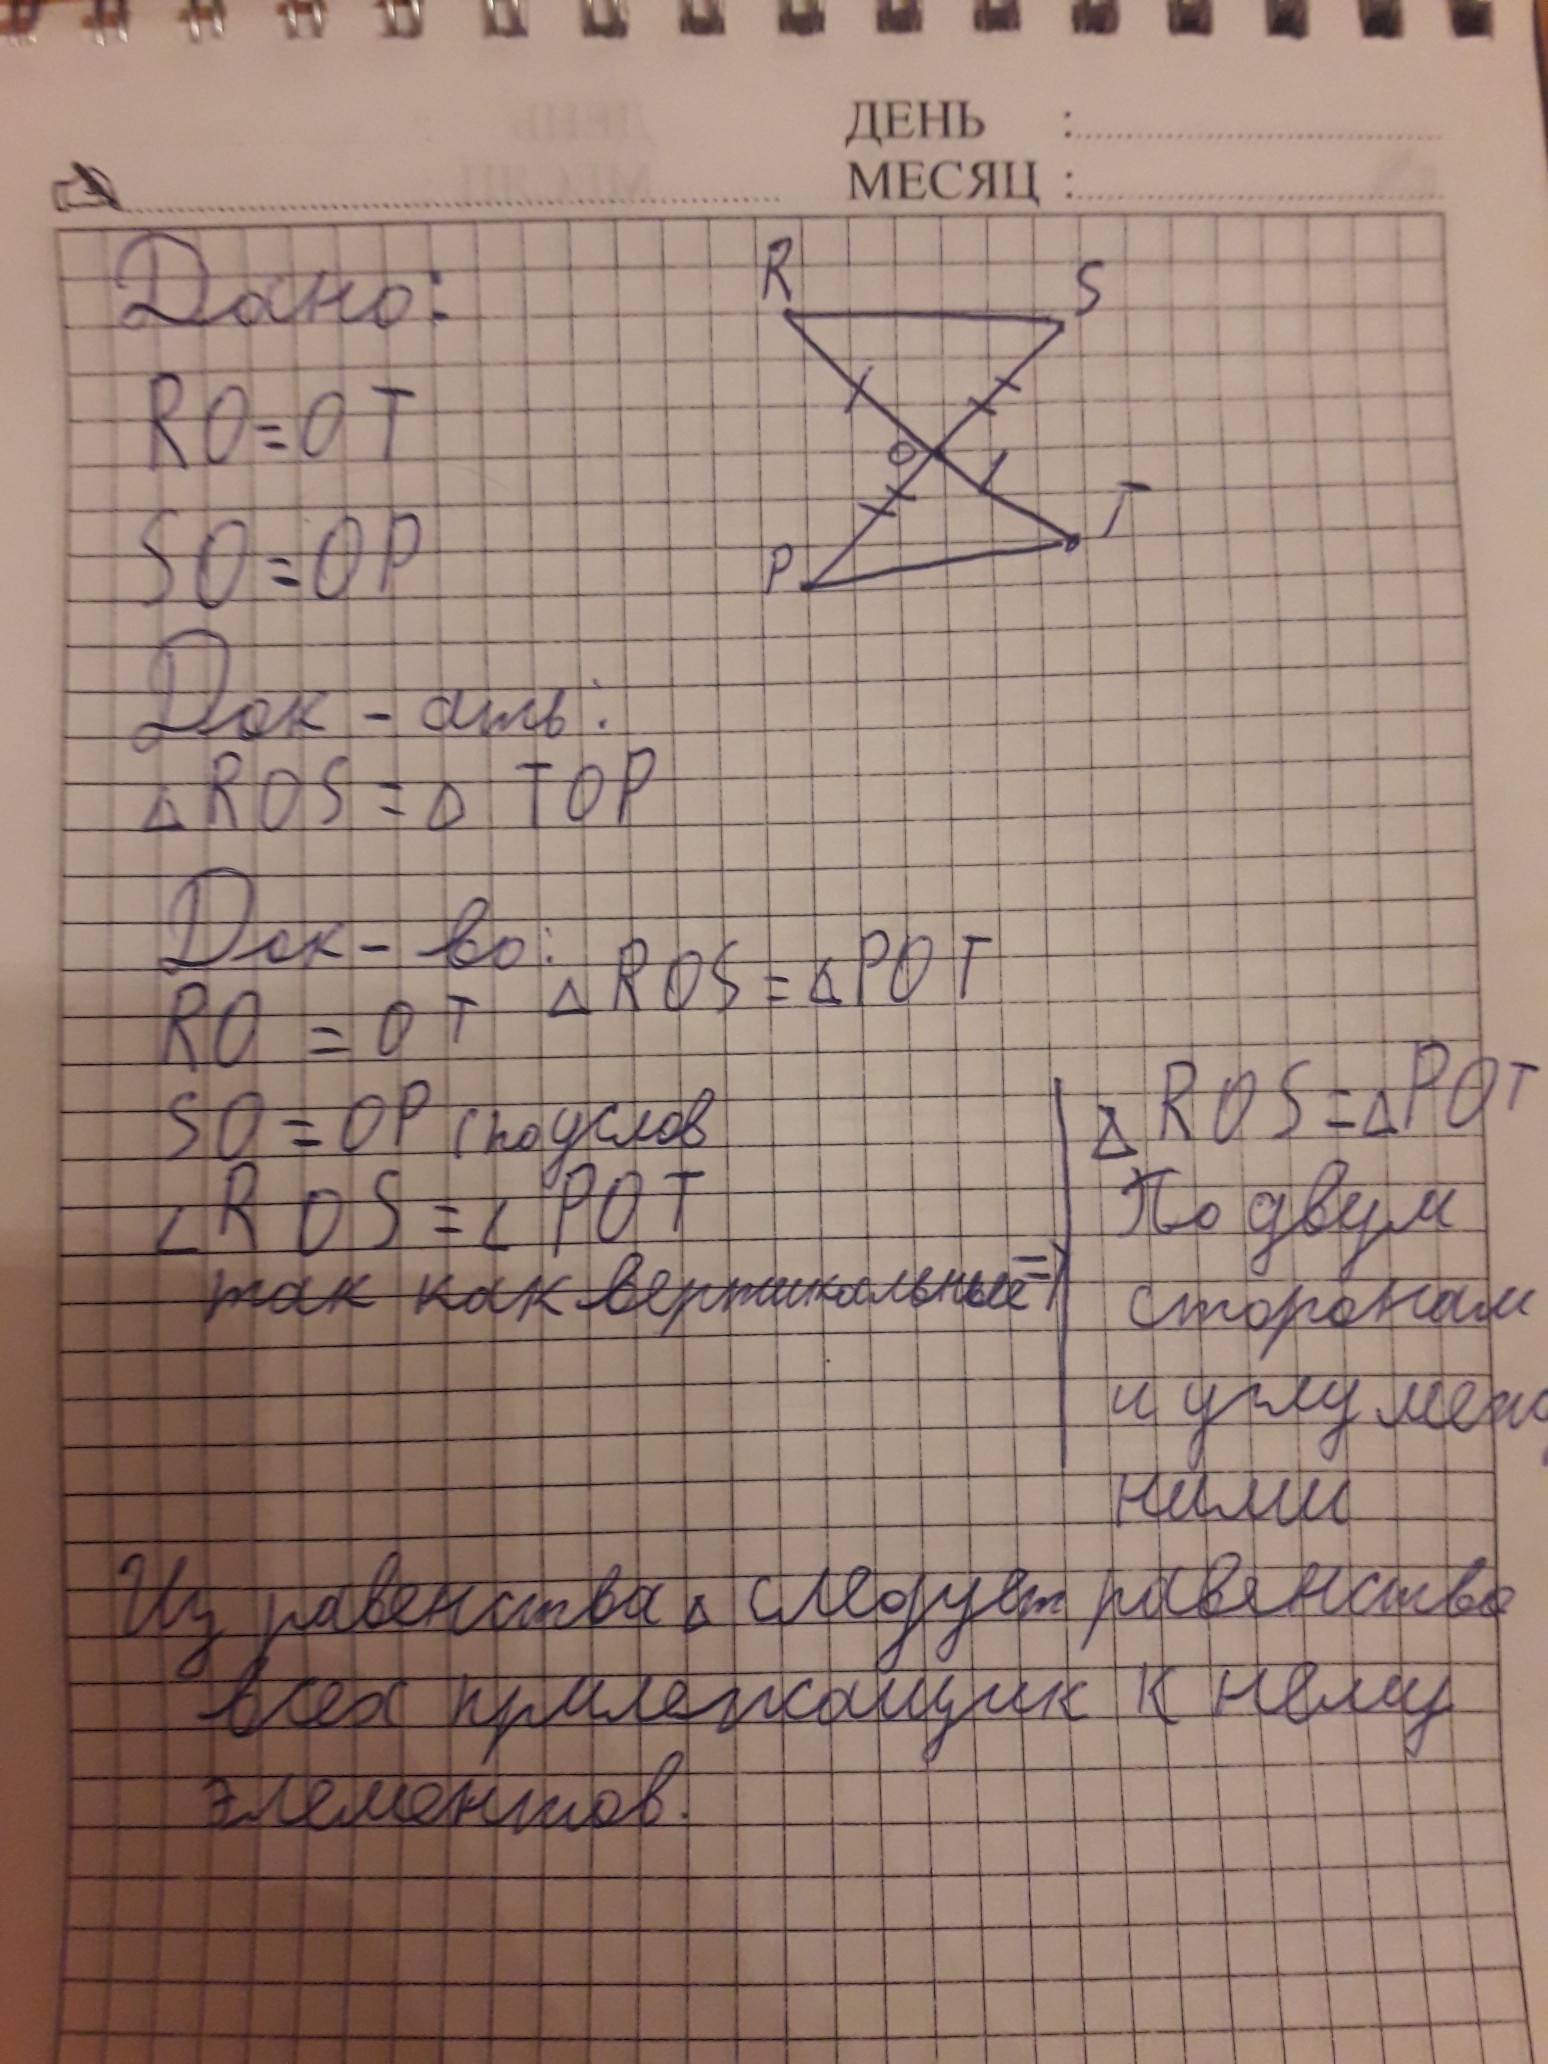 ДЕНЬ :
МЕСЯЦ :
Дано:
R S
RO=OT
O
T
SO=OP
P
Док-ать:
△ROS=△TOP
Док-во: △ROS=△POT
RO=OT
SO=OP (по услов
∠ROS=∠POT
так как вертикальные=)
△ROS=△POT
По двум
сторонам
и углу меж
ними
Из равенства △ следует равенство
всех прилежащик к нему
элементов.